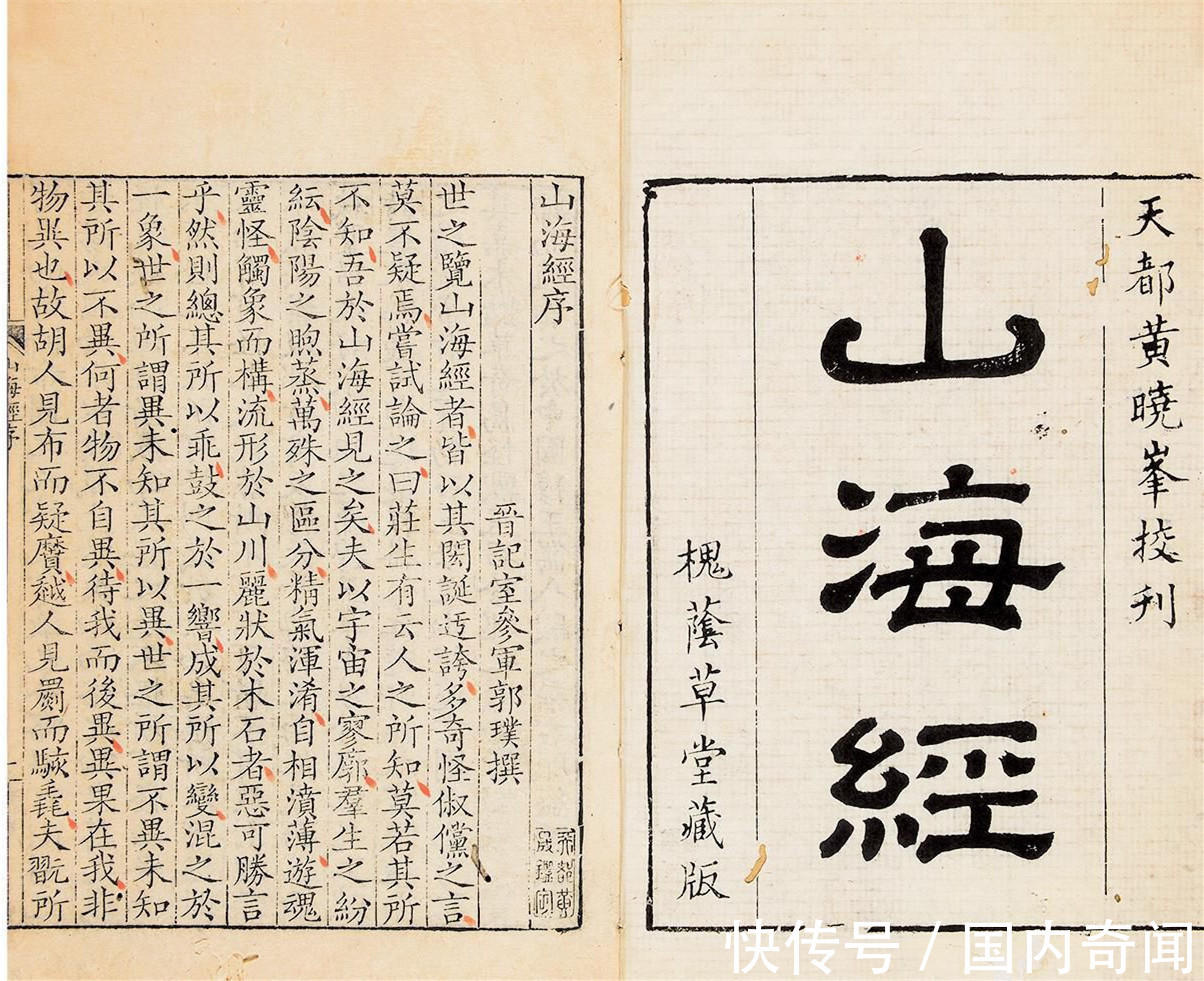 天都黄曉峯挍刋
山海經
槐蔭草堂藏版
山海經序
晉記室參軍郭璞撰
世之覽山海經者皆以其閎誕迂誇多奇怪俶儻之言
莫不疑焉嘗試論之曰莊生有云人之所知莫若其所
不知吾於山海經見之矣夫以宇宙之寥廓羣生之紛
紜陰陽之煦蒸萬殊之區分精氣渾淆自相濆薄遊魂
靈怪觸象而構流形於山川麗狀於木石者惡可勝言
乎然則總其所以乖鼓之於一響成其所以變混之於
一象世之所謂異未知其所以異世之所謂不異未知
其所以不異何者物不自異待我而後異異果在我非
物異也故胡人見布而疑黂越人見罽而駭毳夫翫所
山海經序
快传号 / 国内奇闻